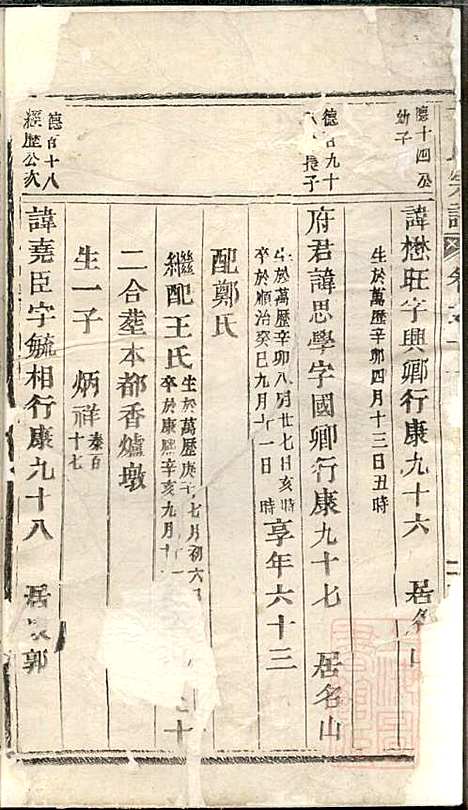 宗譜
德十四公
幼子
諱懋旺字興卿行康九十六 居名山
生於萬歷辛卯四月十三日丑時
德百九十
長子
府君諱思學字國卿行康九十七 居名山
生於萬歷辛卯八月廿七日亥時
卒於順治癸巳九月十一日 時
享年六十三
配鄭氏
繼配王氏
生於萬歷庚 七月初六
卒於康熙辛亥九月十
七十
二合塟本都香爐墩
生一子 炳祥
秦百
十七
德百十八
經歷公次
諱堯臣字毓相行康九十八 居 郭